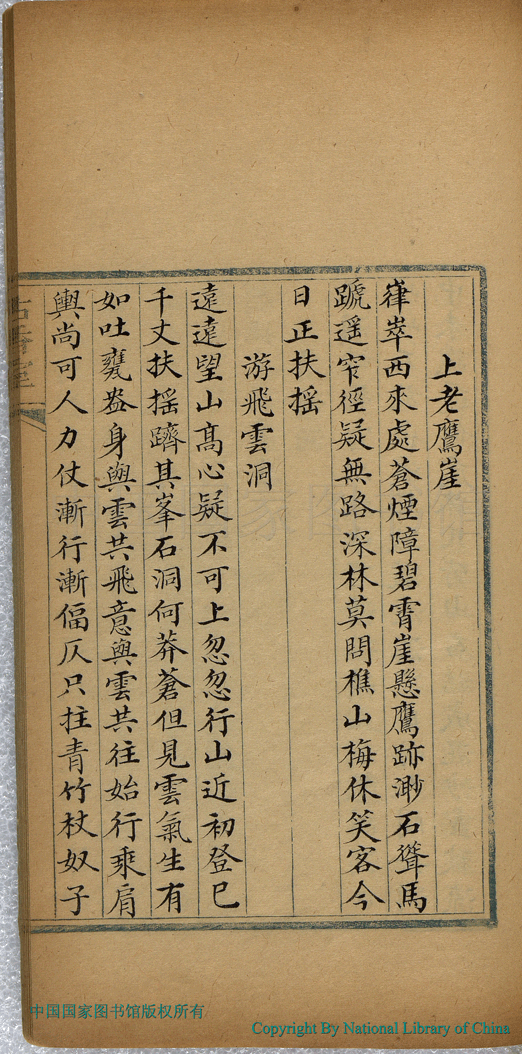 上老鷹崖
嵂崒西來處蒼煙障碧霄崖懸鷹跡渺石聳馬
蹏遥窄徑疑無路深林莫問樵山梅休笑客今
日正扶摇
游飛雲洞
遠遠望山髙心疑不可上忽忽行山近初登已
千丈扶摇躋其峯石洞何莽蒼但見雲氣生有
如吐甕盎身與雲共飛意與雲共往始行乘肩
輿尚可人力仗漸行漸偪仄只拄青竹杖奴子
中国国家图书馆版权所有
Copyright By National Library of China